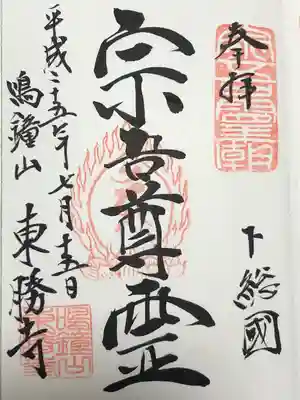 奉拝
下総國
宗吾尊霊
平成二十五年七月十五日
鳴鐘山
東勝寺